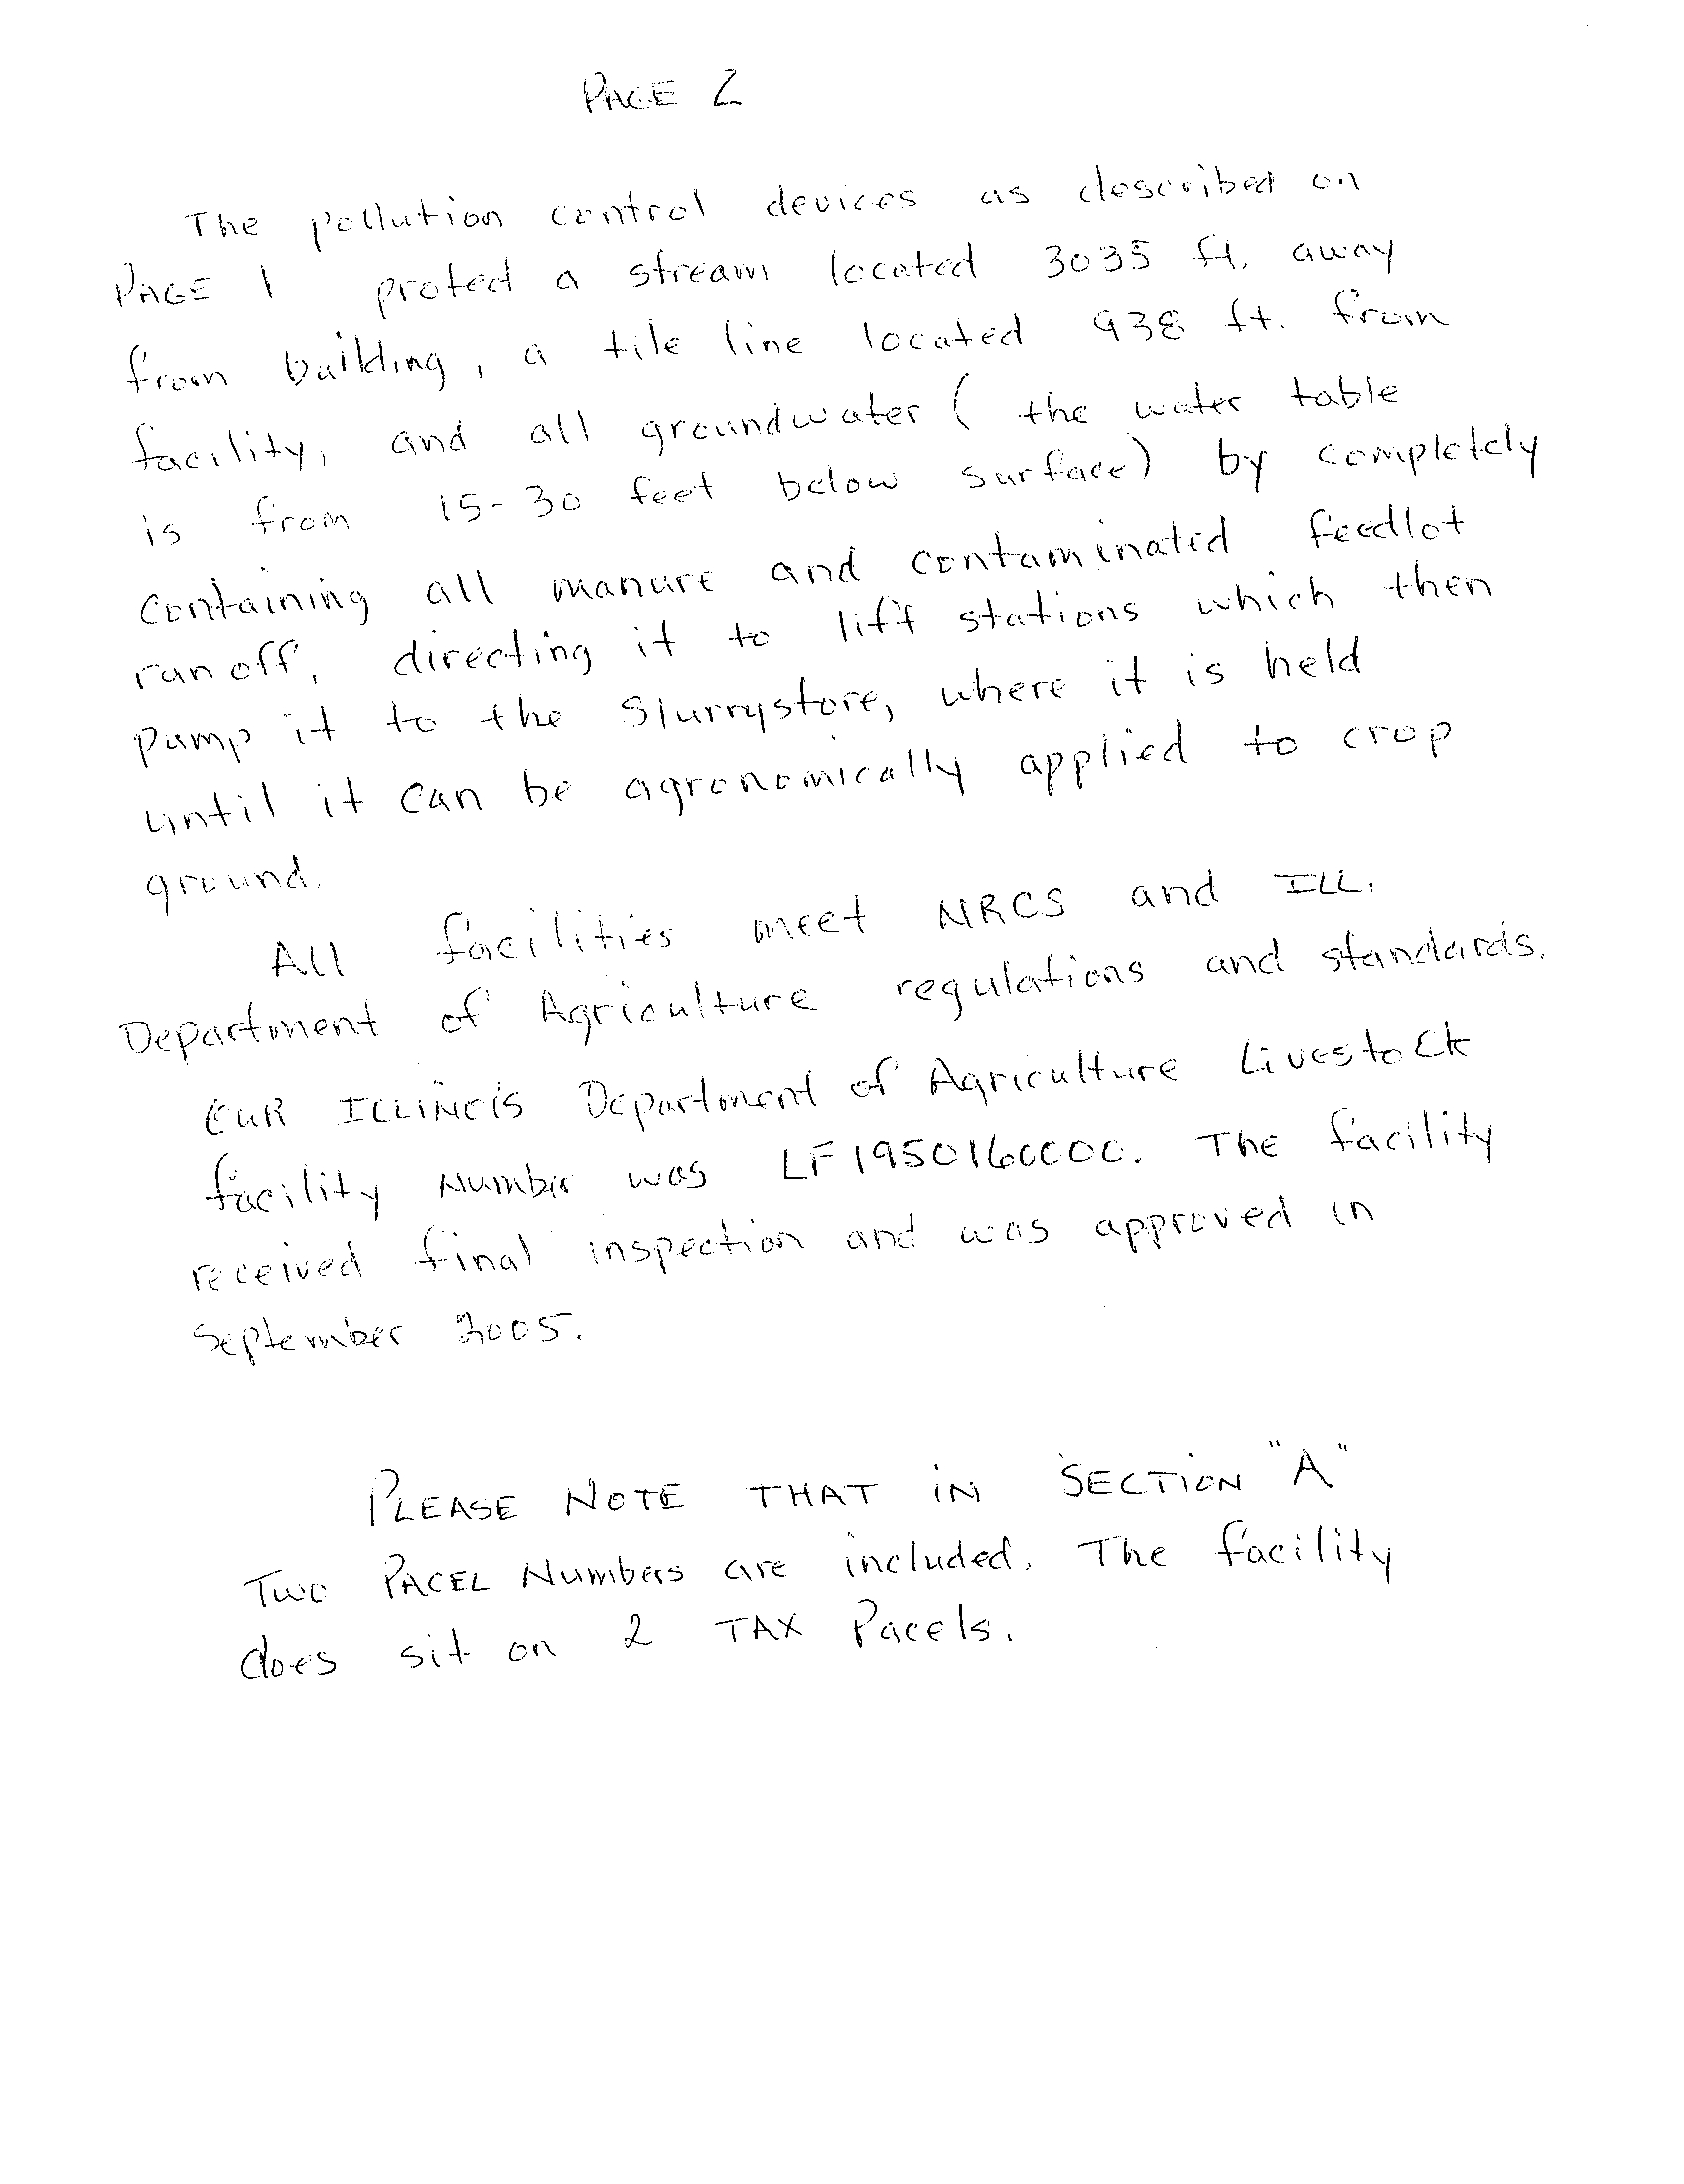 PAGE 2
The pollution control devices as described on
PAGE 1 protect a stream located 3035 ft. away
from building, a tile line located 938 ft. from
facility, and all groundwater (the water table
is from 15-30 feet below surface) by completely
containing all manure and contaminated feedlot
runoff, directing it to lift stations which then
pump it to the Slurrystore, where it is held
until it can be agronomically applied to crop
ground.
All facilities meet NRCS and ILL.
Department of Agriculture regulations and standards.
OUR ILLINOIS Department of Agriculture Livestock
facility Number was LF1950160000. The facility
received final inspection and was approved in
September 2005.
PLEASE NOTE THAT IN SECTION "A"
Two PACEL Numbers are included. The facility
does sit on 2 TAX Pacels.